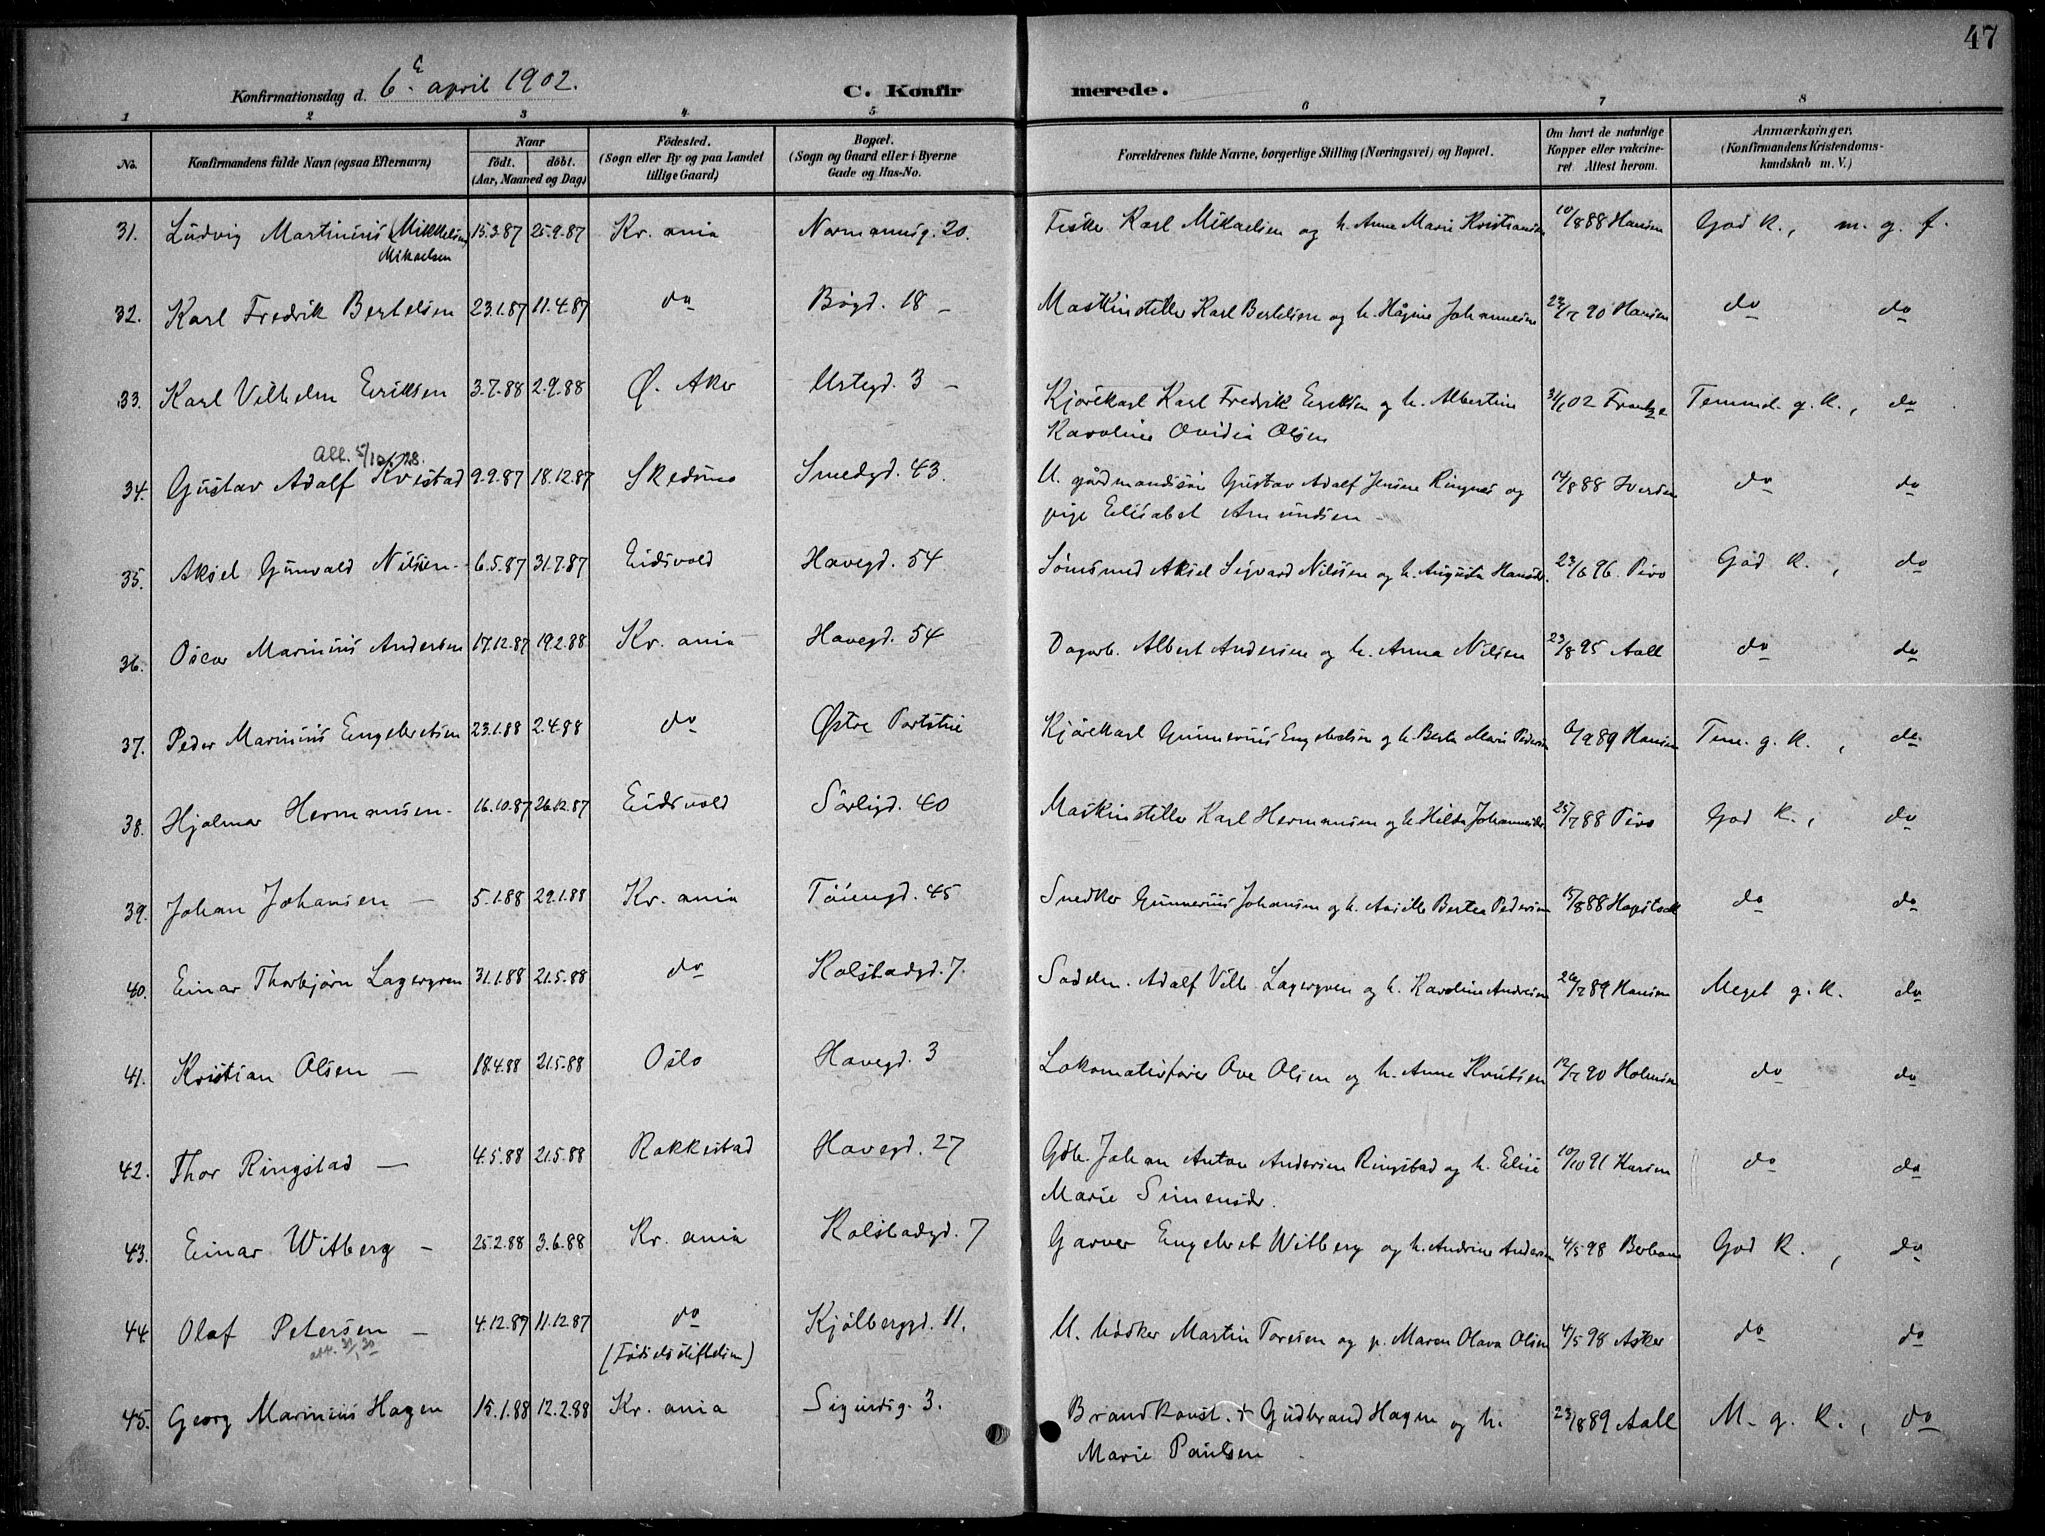 47
Konfirmationsdag d. 6e april 1902.
C. Konfirmerede.
1 2 3 4 5 6 7 8
No.
Konfirmandens fulde Navn (ogsaa Efternavn)
Naar
födt. döbt.
(Aar, Maaned og Dag)
Födested.
(Sogn eller By og paa Landet
tillige Gaard)
Bopæl.
(Sogn og Gaard eller i Byerne
Gade og Hus-No.
Forældrenes fulde Navne, borgerlige Stilling (Næringsvei) og Bopæl.
Om havt de naturlige
Kopper eller vakcine-
ret. Attest herom.
Anmærkninger,
(Konfirmandens Kristendoms-
kundskab m. V.)
31. Ludvig Martinius (Mikkelsen 15.3.87 25.9.87 Kr.ania Normannsg. 20. Fisker Karl Mikaelsen og h. Anne Marie Kristiansen 10/8 88 Hansen God K., m. g. f.
Mikaelsen
32. Karl Fredrik Bertelsen 23.1.87 11.4.87 do Bøgd. 18 – Maskinstiller Karl Bertelsen og h. Hågine Johannesen 23/7 90 Hansen do do
33. Karl Vilhelm Eriksen 3.7.88 2.9.88 Ø. Aker Urtegd. 3 – Kjørekarl Karl Fredrik Eriksen og h. Albertine 31/1 02 Frantze Temmel. g. K., do
Karoline Ovidia Olsen
Att. 5/10 28.
34. Gustav Adolf Kvistad 9.9.87 18.12.87 Skedsmo Smedgd. 43. U. gårdmandssøn Gustav Adolf Jensen Ringnes og 14/8 88 Iversen do do
pige Elisabet Amundsen –
35. Aksel Gunvald Nilsen – 6.5.87 31.7.87 Eidsvold Havegd. 54 Sømsmed Aksel Sigvard Nilssen og h. Augusta Hansdr. 23/6 96. Piro God K., do
36. Oscar Marinius Andersen 17.12.87 19.2.88 Kr.ania Havegd. 54 Dagarb. Albert Andersen og h. Anna Nilsen 23/8 95 Aall do do
37. Peder Marinius Engebretsen 23.1.88 2.4.88 do Østre Portstue Kjørekarl Gunnerius Engebretsen og h. Berte Marie Pedersen /9 89 Hansen Tem. g. K., do
38. Hjalmar Hermansen – 16.10.87 26.12.87 Eidsvold Sørligd. 40 Maskinstiller Karl Hermansen og h. Hilda Johannesdr. 25/7 88 Piro God K., do
39. Johan Johansen – 5.1.88 29.1.88 Kr.ania Tøiengd. 45 Snedker Gunnerius Johansen og h. Bertea Pedersen 15/8 88 do do
40. Einar Thorbjørn Lagergren 31.1.88 21.5.88 do Kolstadgd. 7. Sadelm. Adolf Vilh. Lagergren og h. Karoline Andresen 26/7 89 Hansen Meget g. K. do
41. Kristian Olsen – 18.4.88 21.5.88 Oslo Havegd. 3 Lokomotivfører Ove Olsen og h. Anne Knutsen 12/7 90 Holmsen do do
42. Thor Ringstad – 4.5.88 21.5.88 Rakkestad Havegd. 27 Gdb. Johan Anton Andersen Ringstad og h. Elise 10/10 91 Hansen do do
Marie Simensdr.
43. Einar Witberg – 25.2.88 3.6.88 Kr.ania Kolstadgd. 7 Garver Engebret Witberg og h. Andrine Andersen 4/5 98 God K., do
44. Olaf Petersen – 4.12.87 11.12.87 do Kjølberggd. 11. U. bødker Martin Toresen og p. Maren Olava Olsen 4/5 98 Asker do do
att. 31/1 30 (Fødselsstiftelsen)
45. Georg Marinius Hagen 15.1.88 12.2.88 Kr.ania Sigurdsg. 3. Brandkonst. + Gudbrand Hagen og h. 23/8 89 Aall M. g. K., do
Marie Paulsen